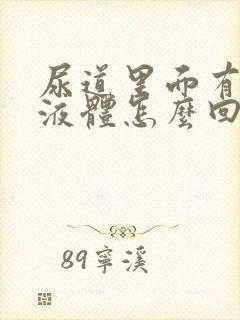 尿道里面有
液體怎麼回
89寧溪